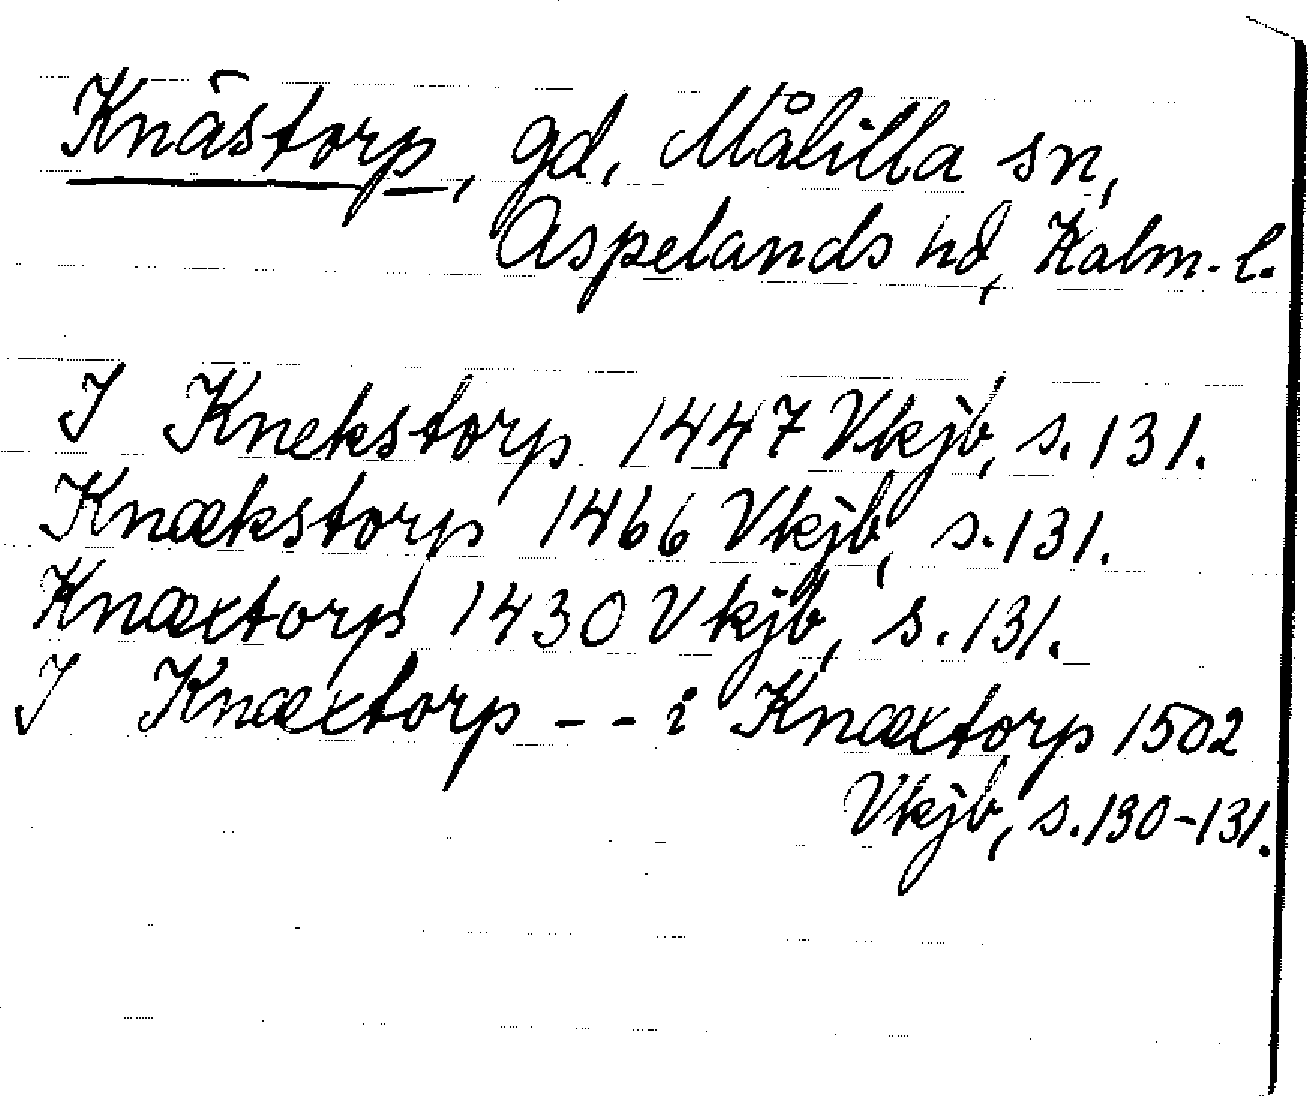 Knästorp, gd, Målilla sn,
Aspelands hd, Kalm. l.
I Knekstorp 1447 Vkjb, s. 131.
Knækstorp 1466 Vkjb, s. 131.
Knæxtorp 1430 Vkjb, s. 131.
I Knæxtorp - - i Knæxtorp 1502
Vkjb, s. 130-131.